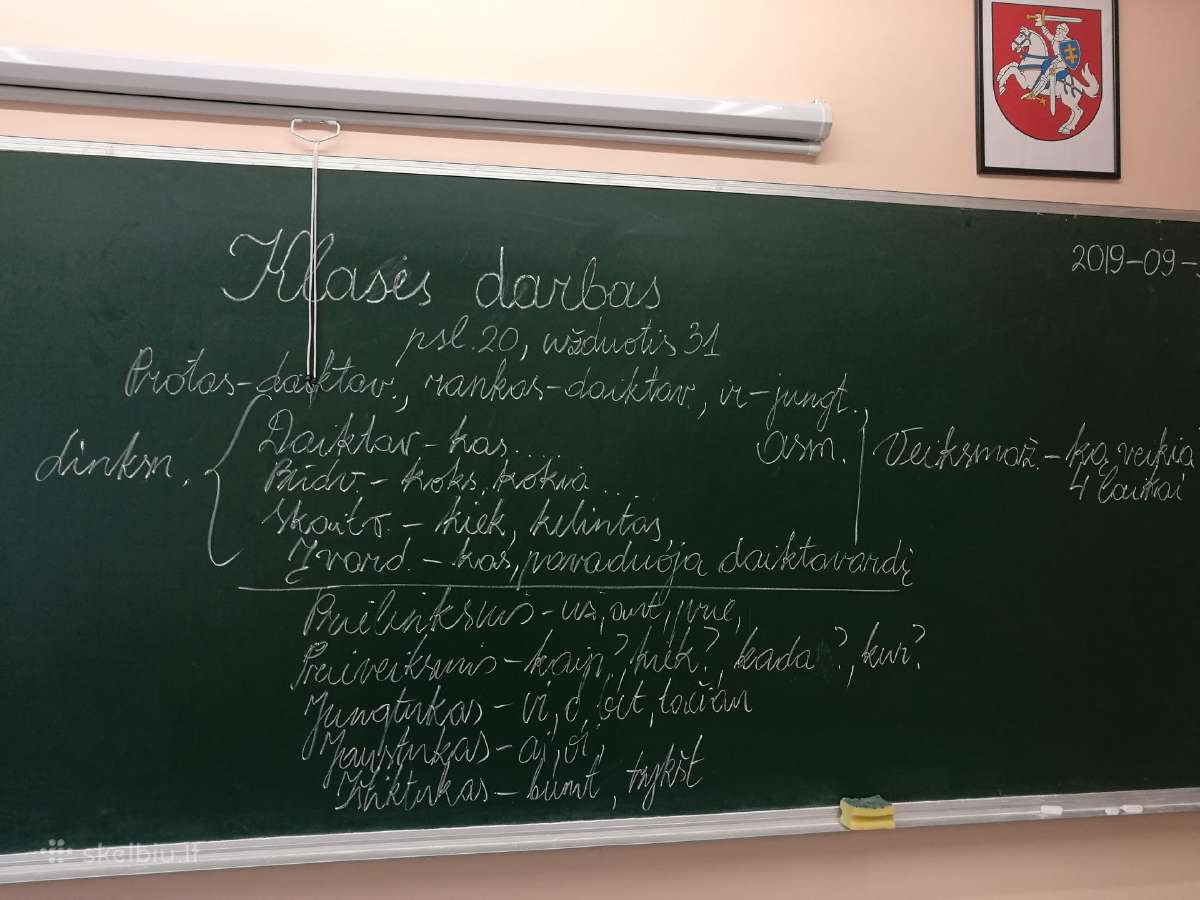 2019-09-
Klasės darbas
psl. 20, užduotis 31
Protas-daiktav., rankas-daiktav., ir-jungt.,
linksn.
Daiktav-kas.....
Būdv.-koks, kokia....
Skaitv.-kiek, kelintas,
Įvard.-kas, pavaduoja daiktavardį
asm.
Veiksmaž.-ką veikia
4 laikai
Prielinksnis-už, ant, prie,
Prieveiksmis-kaip?, kiek?, kada?, kur?
Jungtukas-ir, o, bet, tačiau
Jaustukas-aj, oi,
Ištiktukas-bumt, tykšt
skelbiu.lt